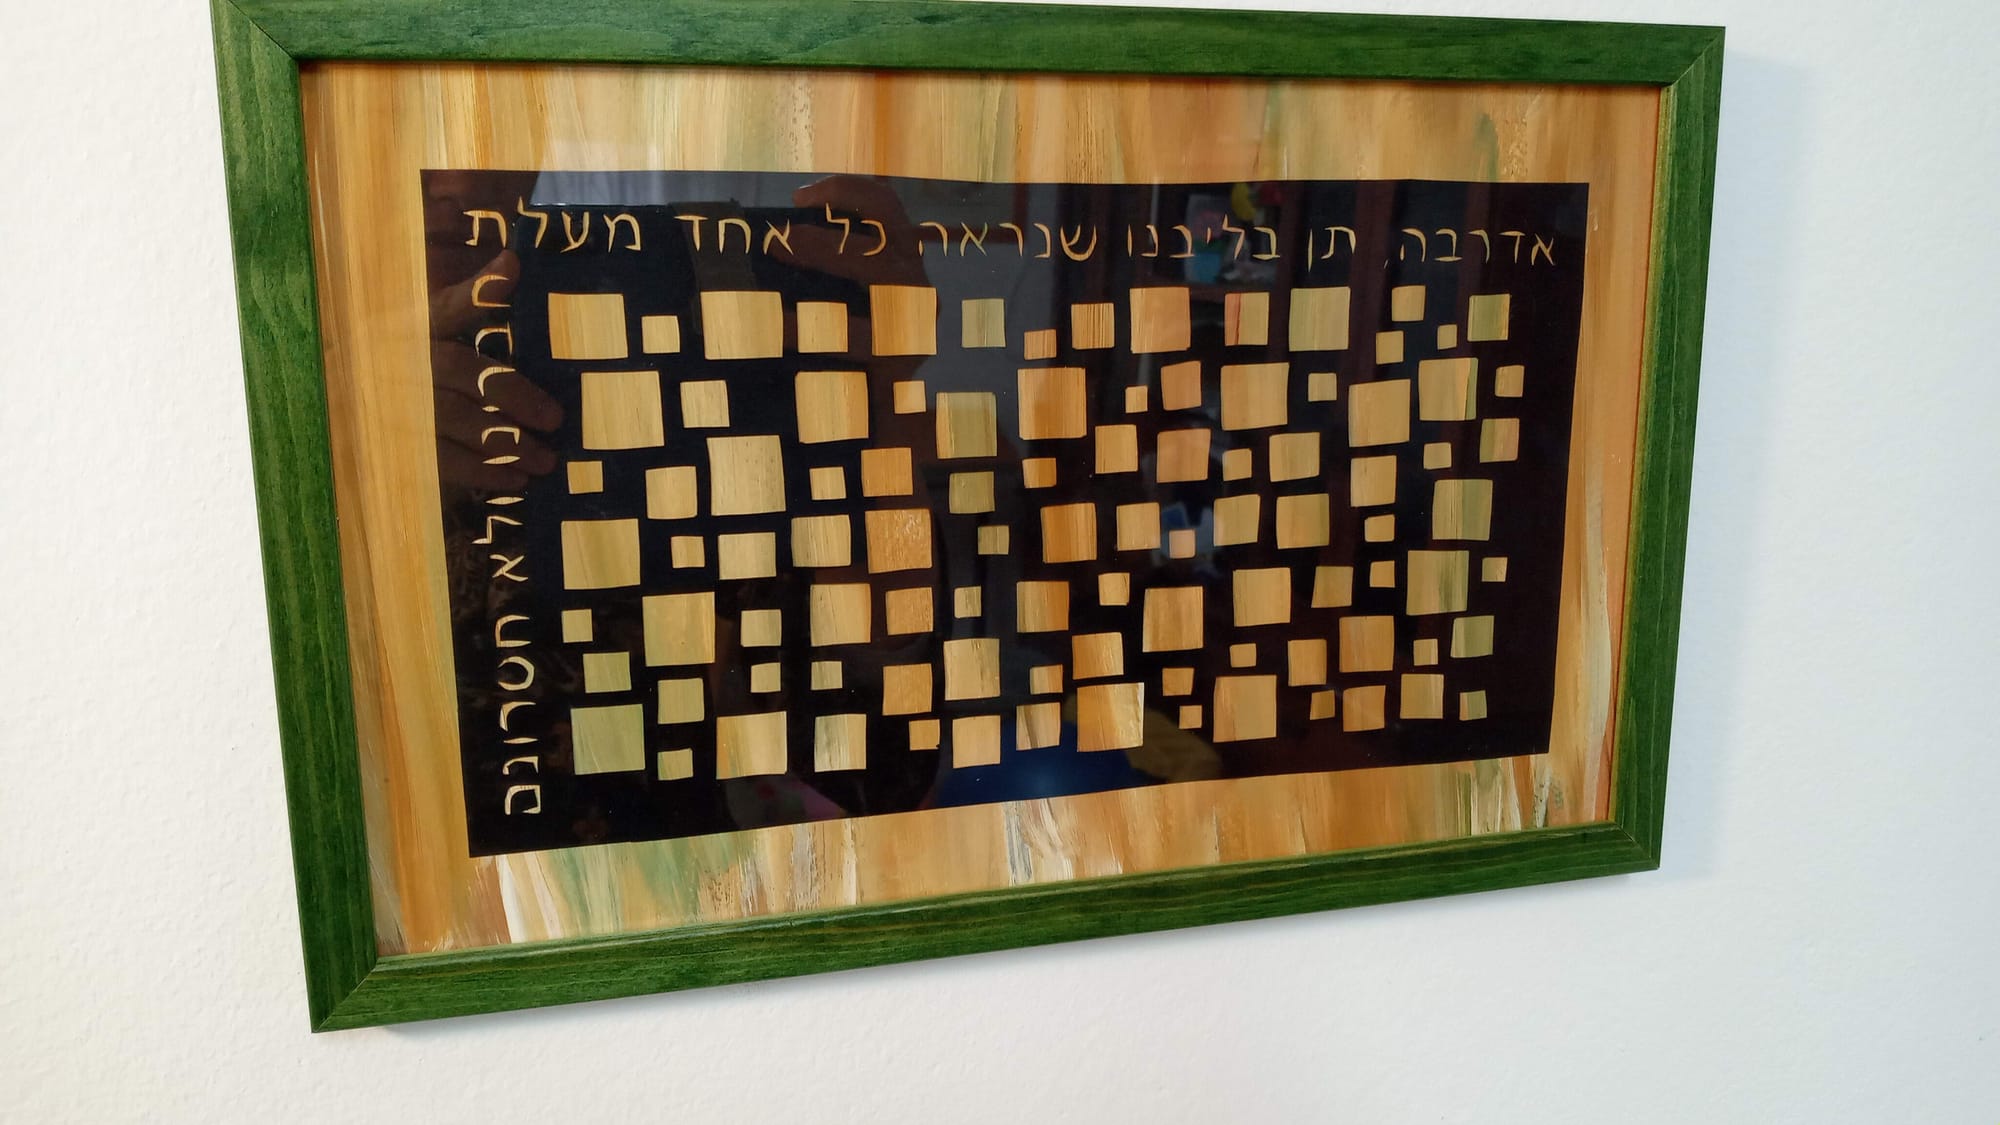 אדרבה, תן בליבנו שנראה כל אחד מעלת
חברינו ולא חסרונם